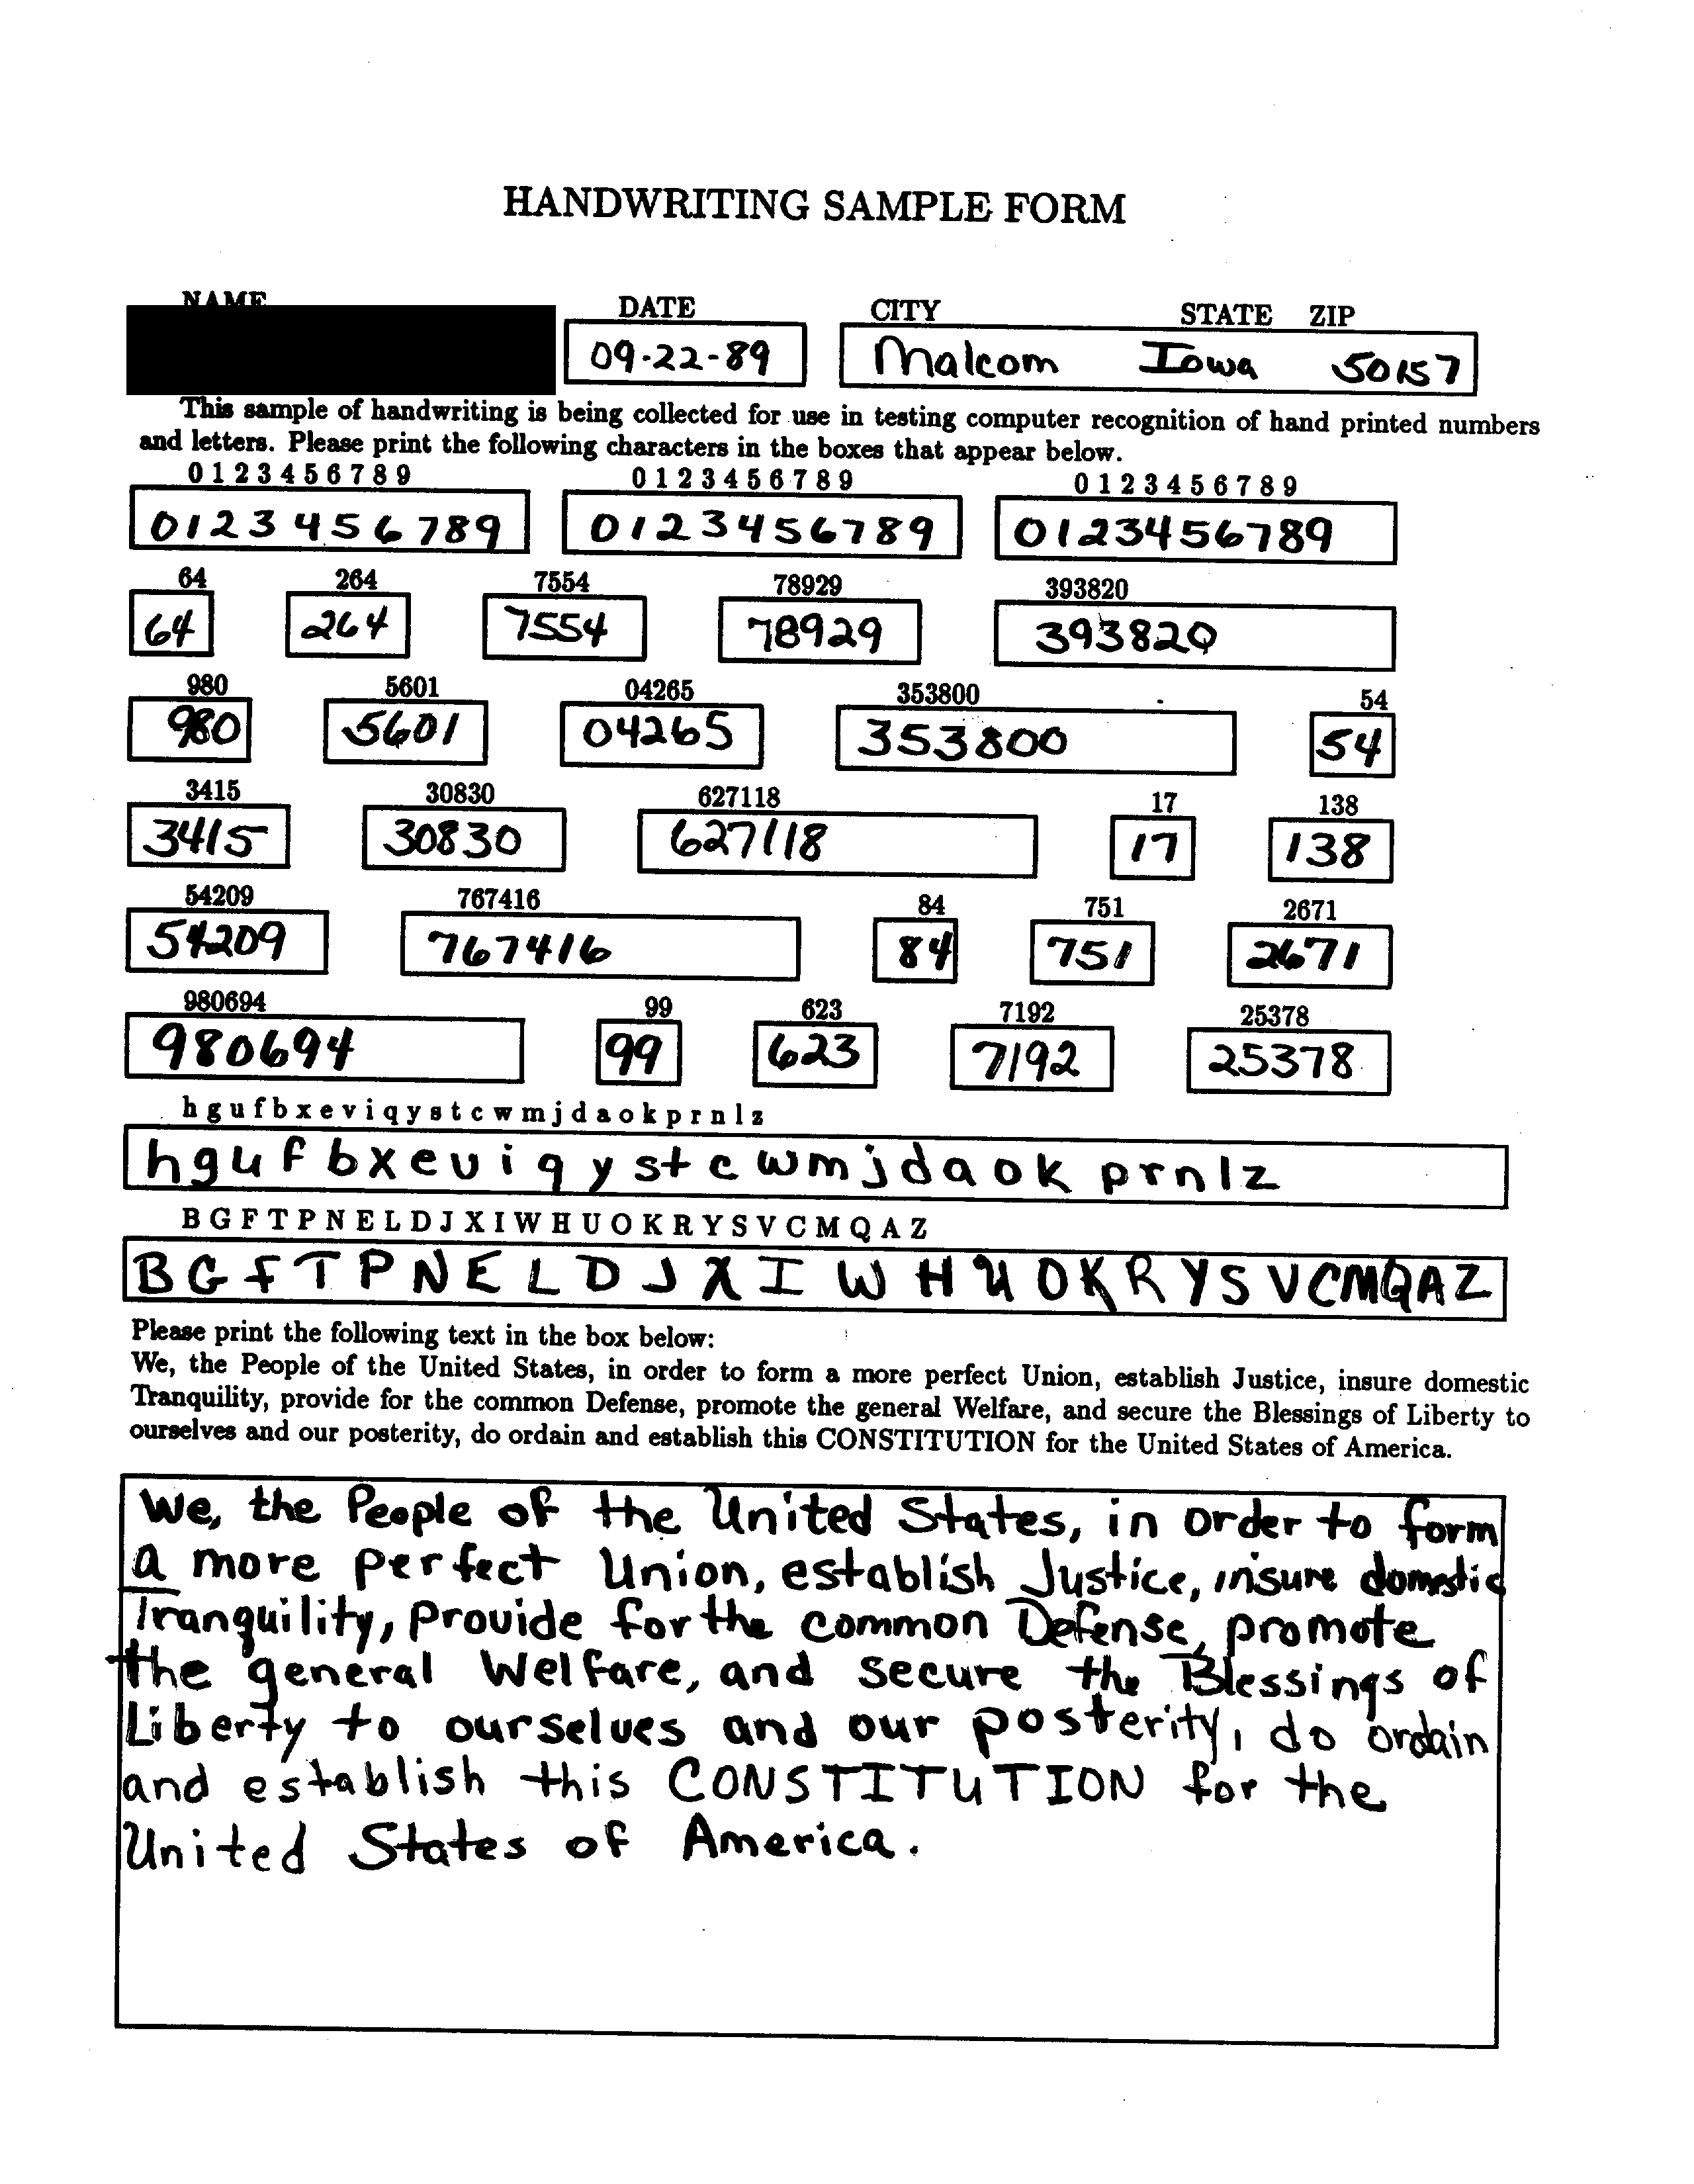 HANDWRITING SAMPLE FORM
NAME DATE CITY STATE ZIP
09-22-89 Malcom Iowa 50157
This sample of handwriting is being collected for use in testing computer recognition of hand printed numbers
and letters. Please print the following characters in the boxes that appear below.
0 1 2 3 4 5 6 7 8 9 0 1 2 3 4 5 6 7 8 9 0 1 2 3 4 5 6 7 8 9
0123456789 0123456789 0123456789
64 264 7554 78929 393820
64 264 7554 78929 393820
980 5601 04265 353800 54
980 5601 04265 353800 54
3415 30830 627118 17 138
3415 30830 627118 17 138
54209 767416 84 751 2671
54209 767416 84 751 2671
980694 99 623 7192 25378
980694 99 623 7192 25378
h g u f b x e v i q y s t c w m j d a o k p r n l z
h g u f b x e v i q y s t c w m j d a o k p r n l z
B G F T P N E L D J X I W H U O K R Y S V C M Q A Z
B G F T P N E L D J X I W H U O K R Y S V C M Q A Z
Please print the following text in the box below:
We, the People of the United States, in order to form a more perfect Union, establish Justice, insure domestic
Tranquility, provide for the common Defense, promote the general Welfare, and secure the Blessings of Liberty to
ourselves and our posterity, do ordain and establish this CONSTITUTION for the United States of America.
We, the People of the United States, in order to form
a more perfect Union, establish Justice, insure domestic
Tranquility, provide for the common Defense, promote
the general Welfare, and secure the Blessings of
Liberty to ourselves and our posterity, do ordain
and establish this CONSTITUTION for the
United States of America.